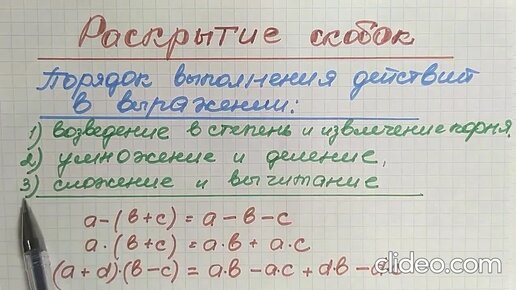 Раскрытие скобок
Порядок выполнения действий
в выражении:
1) возведение в степень и извлечение корня,
2) умножение и деление,
3) сложение и вычитание
a-(b+c) = a-b-c
a·(b+c) = a·b + a·c
(a+d)·(b-c) = a·b - a·c + d·b -
clideo.com